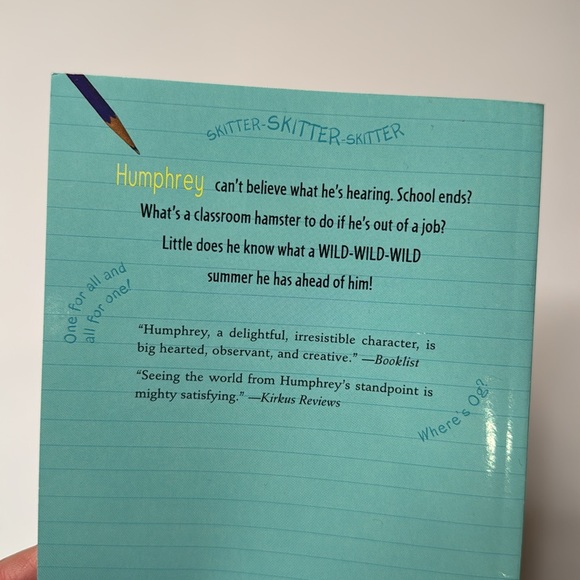 SKITTER-SKITTER-SKITTER
Humphrey can't believe what he's hearing. School ends?
What's a classroom hamster to do if he's out of a job?
Little does he know what a WILD-WILD-WILD
summer he has ahead of him!
One for all and
all for one!
"Humphrey, a delightful, irresistible character, is
big hearted, observant, and creative." —Booklist
"Seeing the world from Humphrey's standpoint is
mighty satisfying." —Kirkus Reviews
Where's Og?